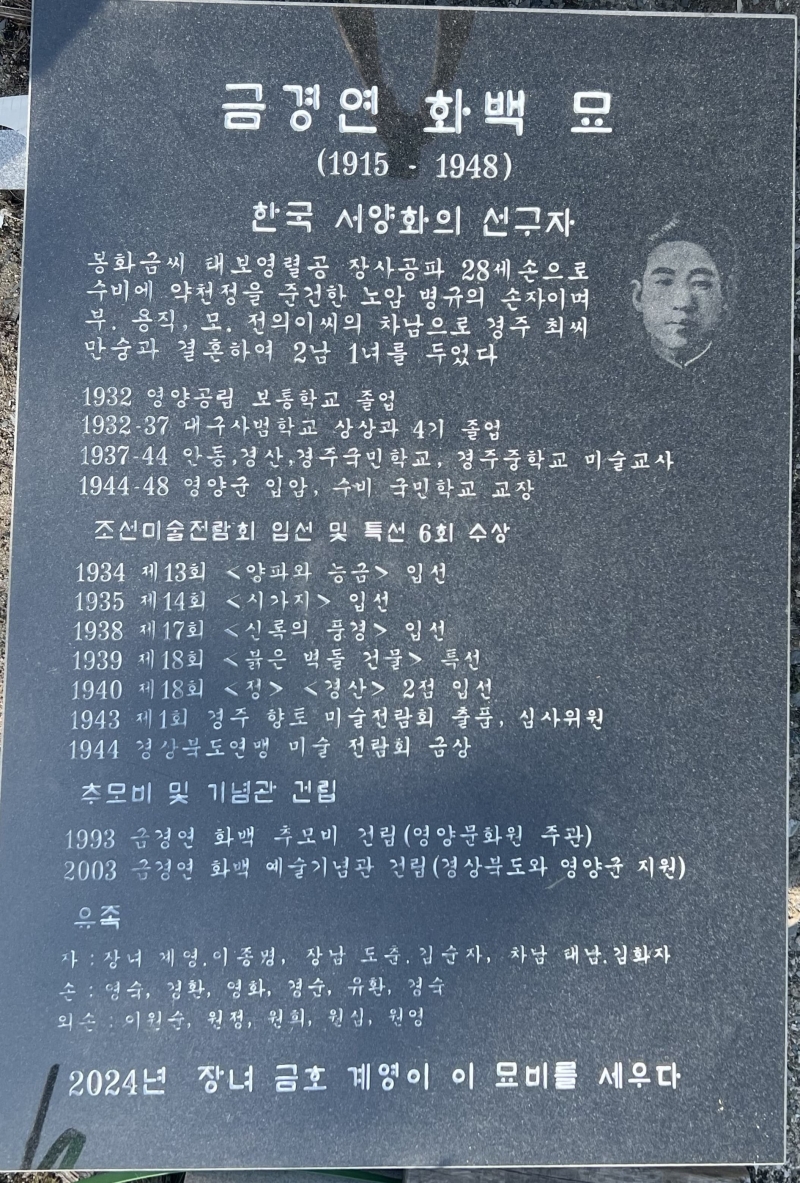 금경연 화백 묘
(1915 - 1948)
한국 서양화의 선구자
봉화금씨 태보영렬공 장사공파 28세손으로
수비에 약천정을 준건한 노암 병규의 손자이며
부. 용직, 모. 전의이씨의 차남으로 경주 최씨
만숭과 결혼하여 2남 1녀를 두었다
1932 영양공립 보통학교 졸업
1932-37 대구사범학교 상상과 4기 졸업
1937-44 안동,경산,경주국민학교, 경주중학교 미술교사
1944-48 영양군 입암, 수비 국민학교 교장
조선미술전람회 입선 및 특선 6회 수상
1934 제13회 <양파와 능금> 입선
1935 제14회 <시가지> 입선
1938 제17회 <신록의 풍경> 입선
1939 제18회 <붉은 벽돌 건물> 특선
1940 제18회 <정> <경산> 2점 입선
1943 제1회 경주 향토 미술전람회 출품, 심사위원
1944 경상북도연맹 미술 전람회 금상
추모비 및 기념관 건립
1993 금경연 화백 추모비 건립(영양문화원 주관)
2003 금경연 화백 예술기념관 건립(경상북도와 영양군 지원)
유족
자 : 장녀 계영.이종범, 장남 도춘.김순자, 차남 태남.김화자
손 : 영숙, 경환, 영화, 경순, 유환, 경숙
외손 : 이원순, 원정, 원희, 원심, 원영
2024년 장녀 금호 계영이 이 묘비를 세우다